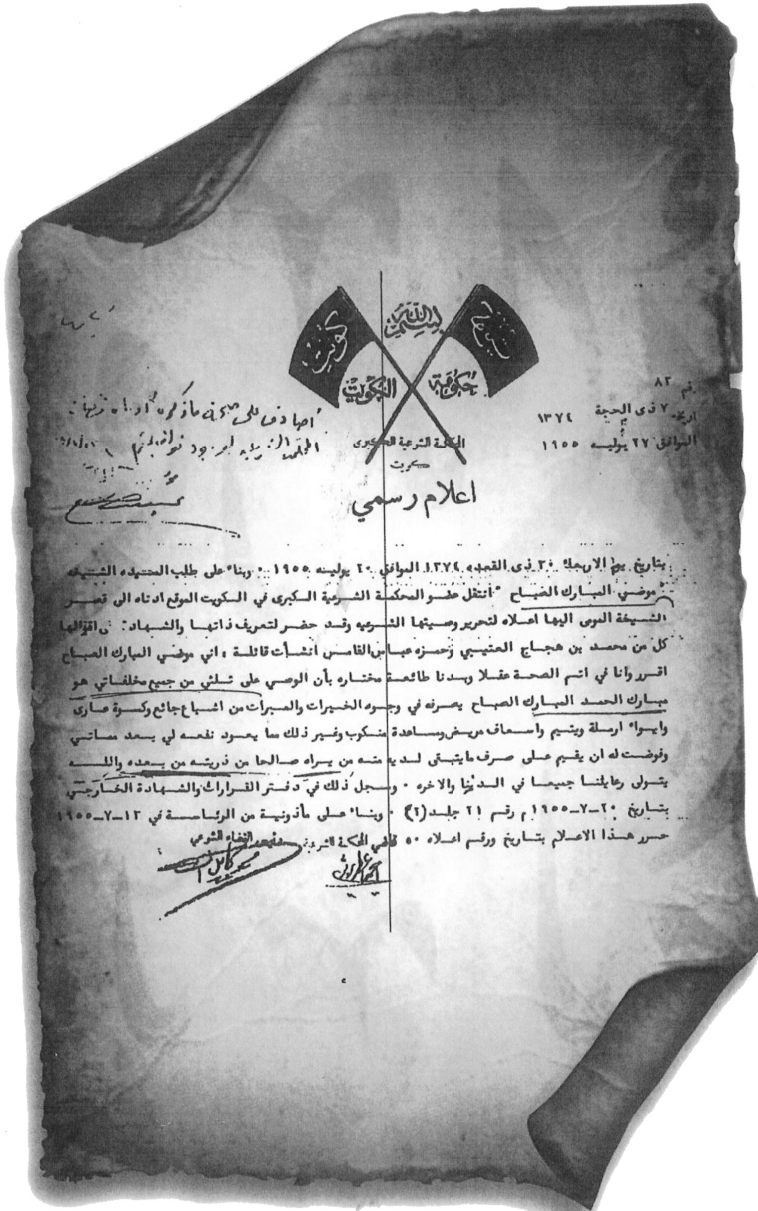 بسم الله
كويت
حكومة الكويت
رقم ٨٢
٧ ذى الحجة ١٣٧٤
الموافق ٢٧ يوليه ١٩٥٥
المحكمة الشرعية الكبرى
كويت
اعلام رسمي
بتاريخ يوم الاربعاء ٣٠ ذى القعده ١٣٧٤ الموافق ٢٠ يوليه ١٩٥٥ . وبناء على طلب
موضي المبارك الصباح انتقل عضو المحكمة الشرعية الكبرى في الكويت الموقع ادناه الى قصر
الشيخة المومى اليها اعلاه لتحرير وصيتها الشرعيه وقد حضر لتعريف ذاتها والشهادة على اقوالها
كل من محمد بن هجاج العتيبي وحمزه عباس القامس انشأت قائلة ، اني موضي المبارك الصباح
اقرر وأنا في اتم الصحة عقلا وبدنا طائعة مختاره بأن الوصي على ثلثي من جميع مخلفاتي هو
مبارك الحمد المبارك الصباح يصرفه في وجوه الخيرات والمبرات من اشباع جائع وكسوة عارى
وايواء ارملة ويتيم واسعاف مريض ومساعدة منكوب وغير ذلك مما يعود نفعه لي بعد مماتي
وفوضت له ان يقيم على صرف مايتبقى لديه منه من يراه صالحا من ذريته من بعده والله
يتولى رعايتنا جميعا في الدنيا والاخره . وسجل ذلك في دفتر القرارات والشهادة الخارجي
بتاريخ ٢٠-٧-١٩٥٥م رقم ٢١ جلد (٢) . وبناء على مأذونية من الرئاسة في ١٣-٧-١٩٥٥
حرر هذا الاعلام بتاريخ ورقم اعلاه ٥٠ قاضي المحكمة الشرعية
القضاء الشرعي